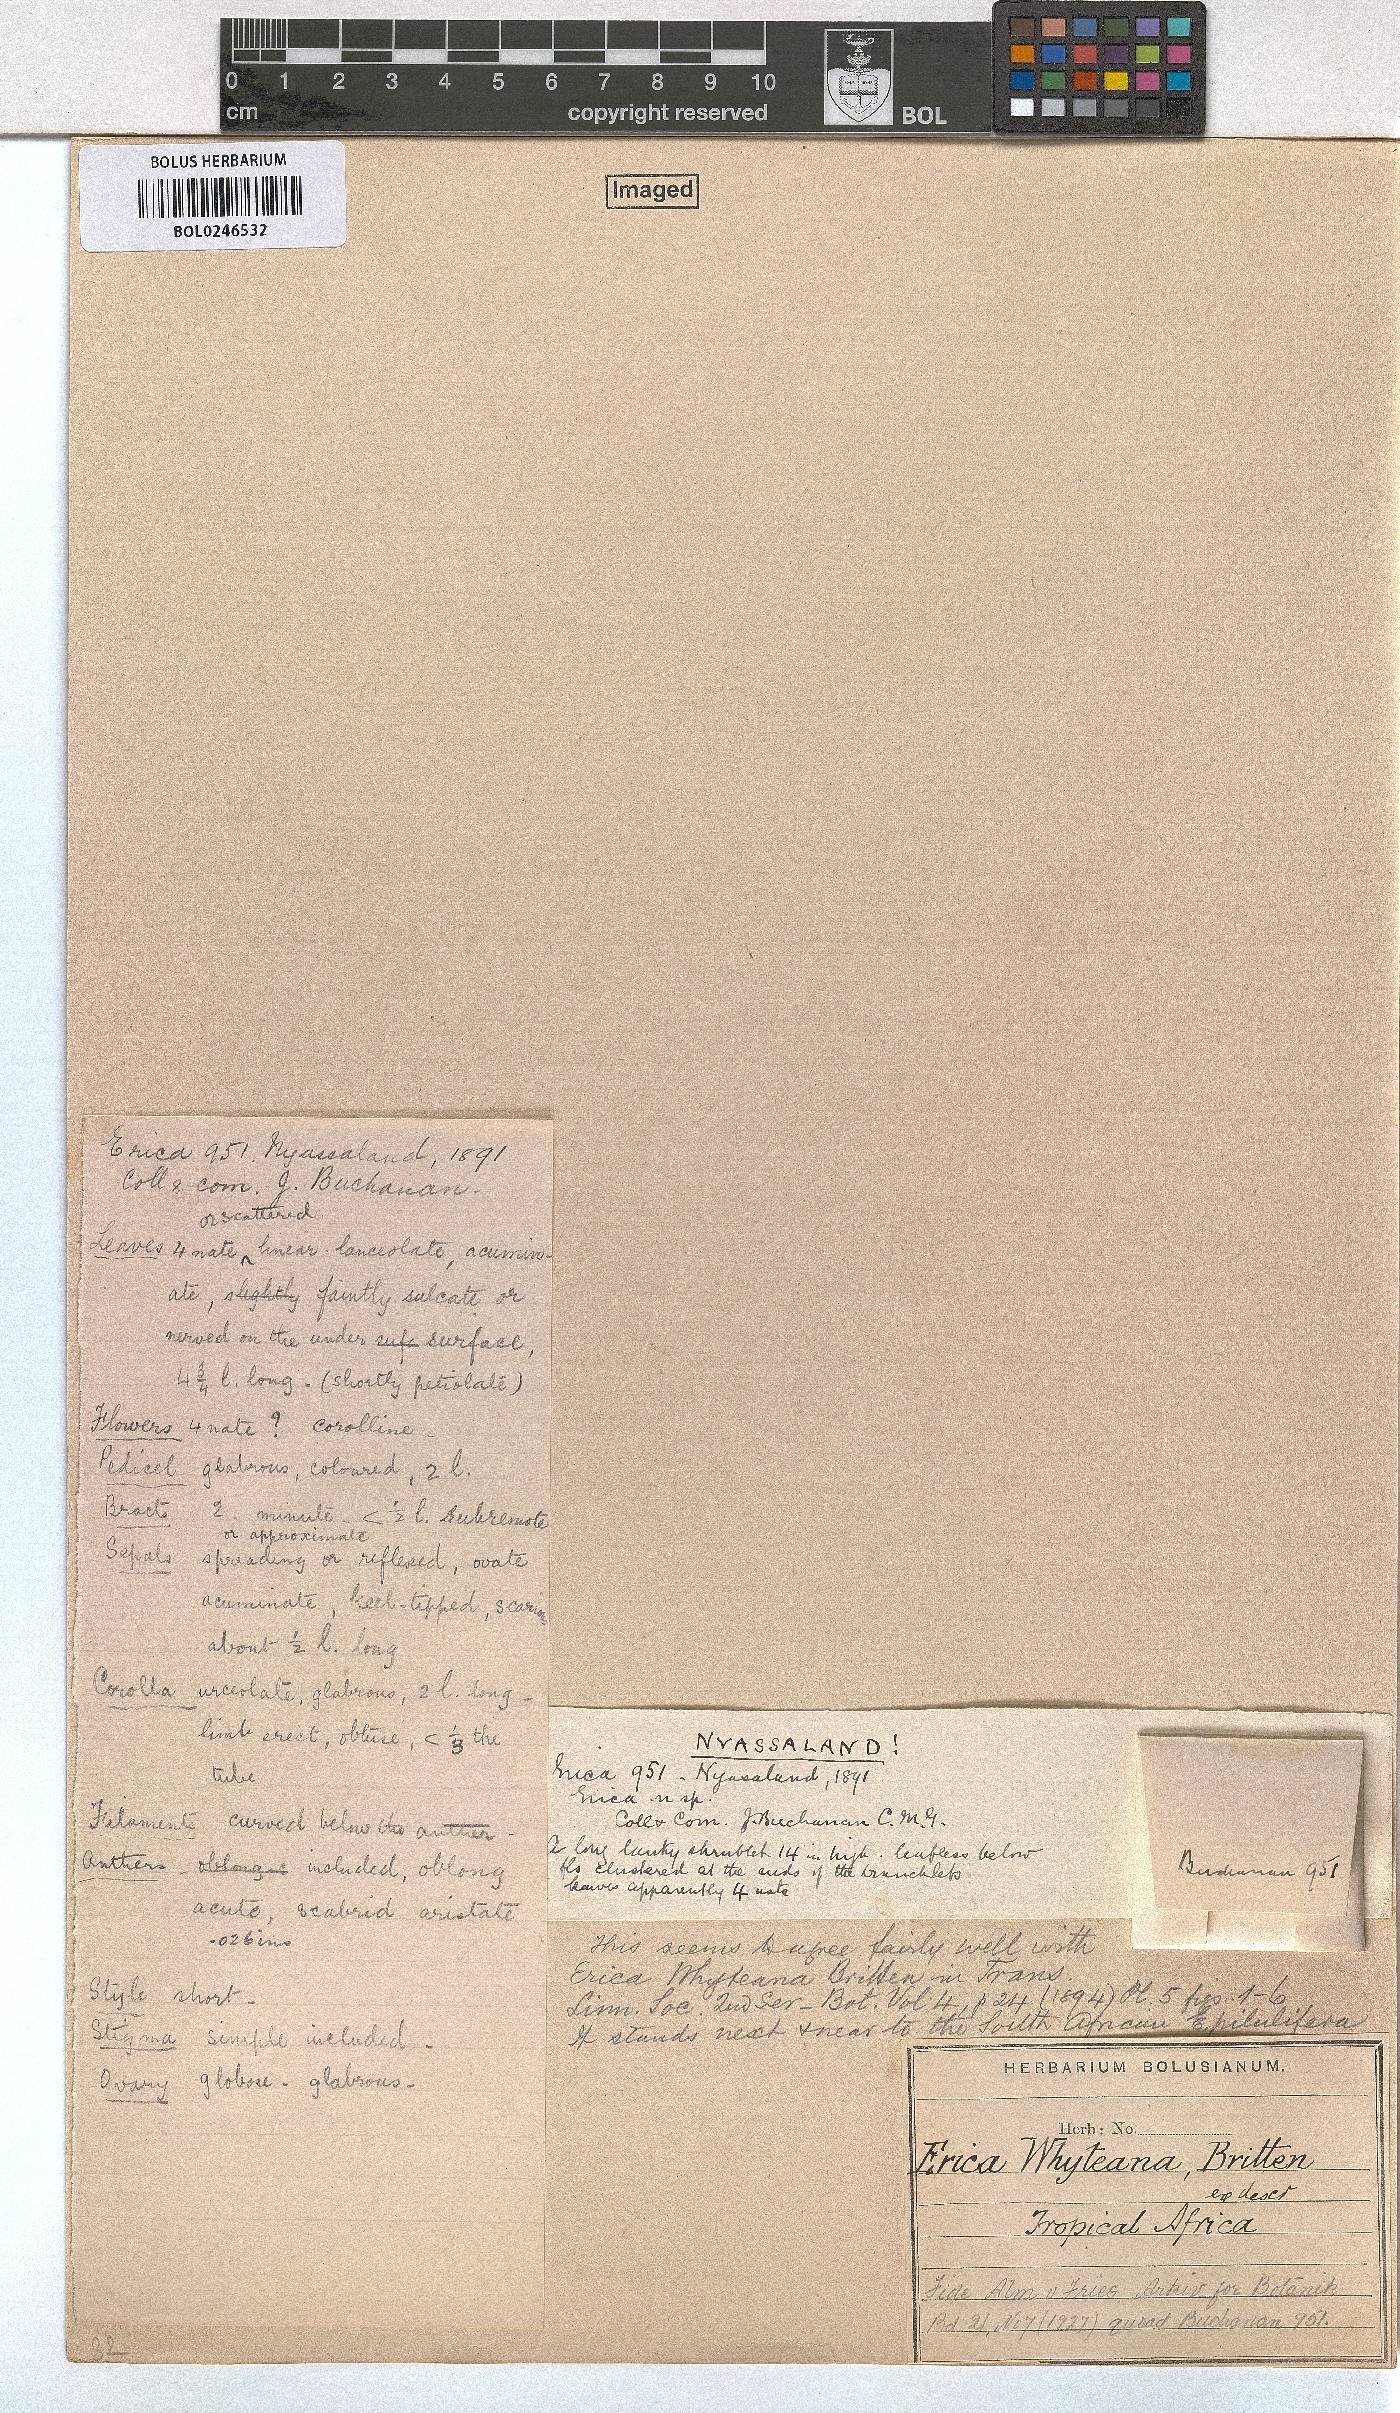 0 1 2 3 4 5 6 7 8 9 10
cm copyright reserved BOL
BOLUS HERBARIUM
BOL0246532
Imaged
Erica 951. Nyassaland, 1891
Coll & com. J. Buchanan.
or scattered
Leaves 4 nate linear-lanceolate, acumin-
ate, slightly faintly sulcate or
nerved on the under surf surface,
4 3/4 l. long - (shortly petiolate)
Flowers 4 nate ? corolline -
Pedicel glabrous, coloured, 2 l.
Bracts 2 minute - < 1/2 l. subremote
or approximate
Sepals spreading or reflexed, ovate
acuminate, keel-tipped, scarious
about 1/2 l. long
Corolla urceolate, glabrous, 2 l. long -
limb erect, obtuse, < 1/3 the
tube
Filaments curved below the anther -
Anthers oblong included, oblong
acute, scabrid aristate
.026 ins
Style short -
Stigma simple included -
Ovary globose - glabrous -
32
NYASSALAND!
Erica 951 - Nyasaland, 1891
Erica n sp.
Coll & Com. J. Buchanan C.M.G.
A long lanky shrublet 14 in high. leafless below
fls clustered at the ends of the branchlets
leaves apparently 4 nate
Buchanan 951
This seems to agree fairly well with
Erica Whyteana Britten in Trans.
Linn. Soc. 2nd Ser - Bot. Vol 4, p 24 (1894) Pl. 5 figs 1-6
It stands next & near to the South African E. pilulifera
HERBARIUM BOLUSIANUM.
Herb: No.
Erica Whyteana, Britten
ex descr
Tropical Africa
Fide Alm & Fries Arkiv for Botanik
Bd 21, No 7 (1927) quoad Buchanan 951.